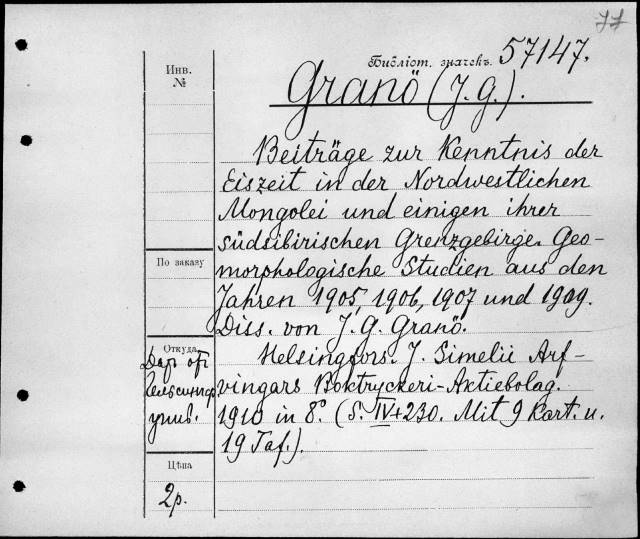 77
Библіот. значекъ. 57147.
Инв.
№
Granö (J. G.).
Beiträge zur Kenntnis der
Eiszeit in der Nordwestlichen
Mongolei und einigen ihrer
südsibirischen Grenzgebirge. Geo-
morphologische Studien aus den
Jahren 1905, 1906, 1907 und 1909.
Diss. von J. G. Granö.
Helsingfors. J. Simelii Arf-
vingars Boktryckeri-Aktiebolag.
1910 in 8° (S. IV+230. Mit 9 Kart. u.
19 Taf.).
По заказу
Откуда
Дар от
Гельсингф.
унив.
Цѣна
2р.